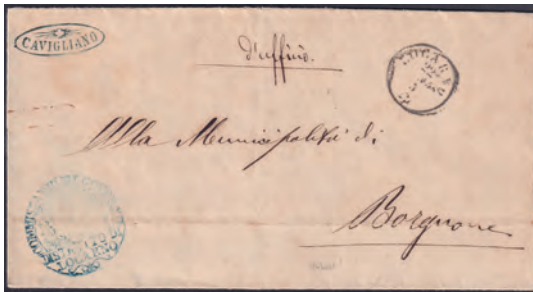 CAVIGLIANO
d'ufficio.
LOCARNO
Alla Municipalità di
Borgnone
LOCARNO